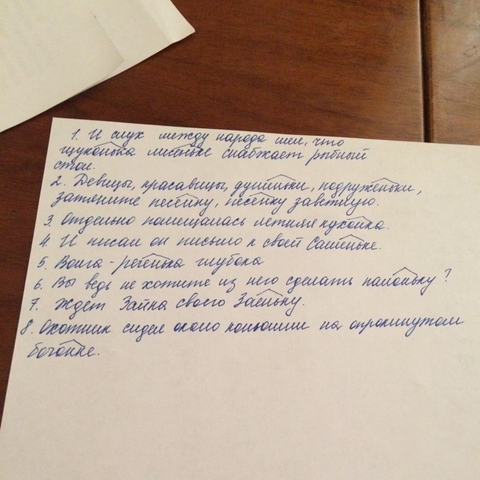 1. И слух между народа шел, что
щуконька лисоньке снабжает рыбный
стол.
2. Девицы, красавицы, душеньки, подруженьки,
затяните песенку, песенку заветную.
3. Отдельно помещалась летняя кухонька.
4. И писал он письмо к своей Сашеньке.
5. Волга - реченька глубока
6. Вы ведь не хотите из него сделать паиньку?
7. Ждет Зайка своего Заеньку.
8. Охотник сидел около конюшни на опрокинутом
бочонке.